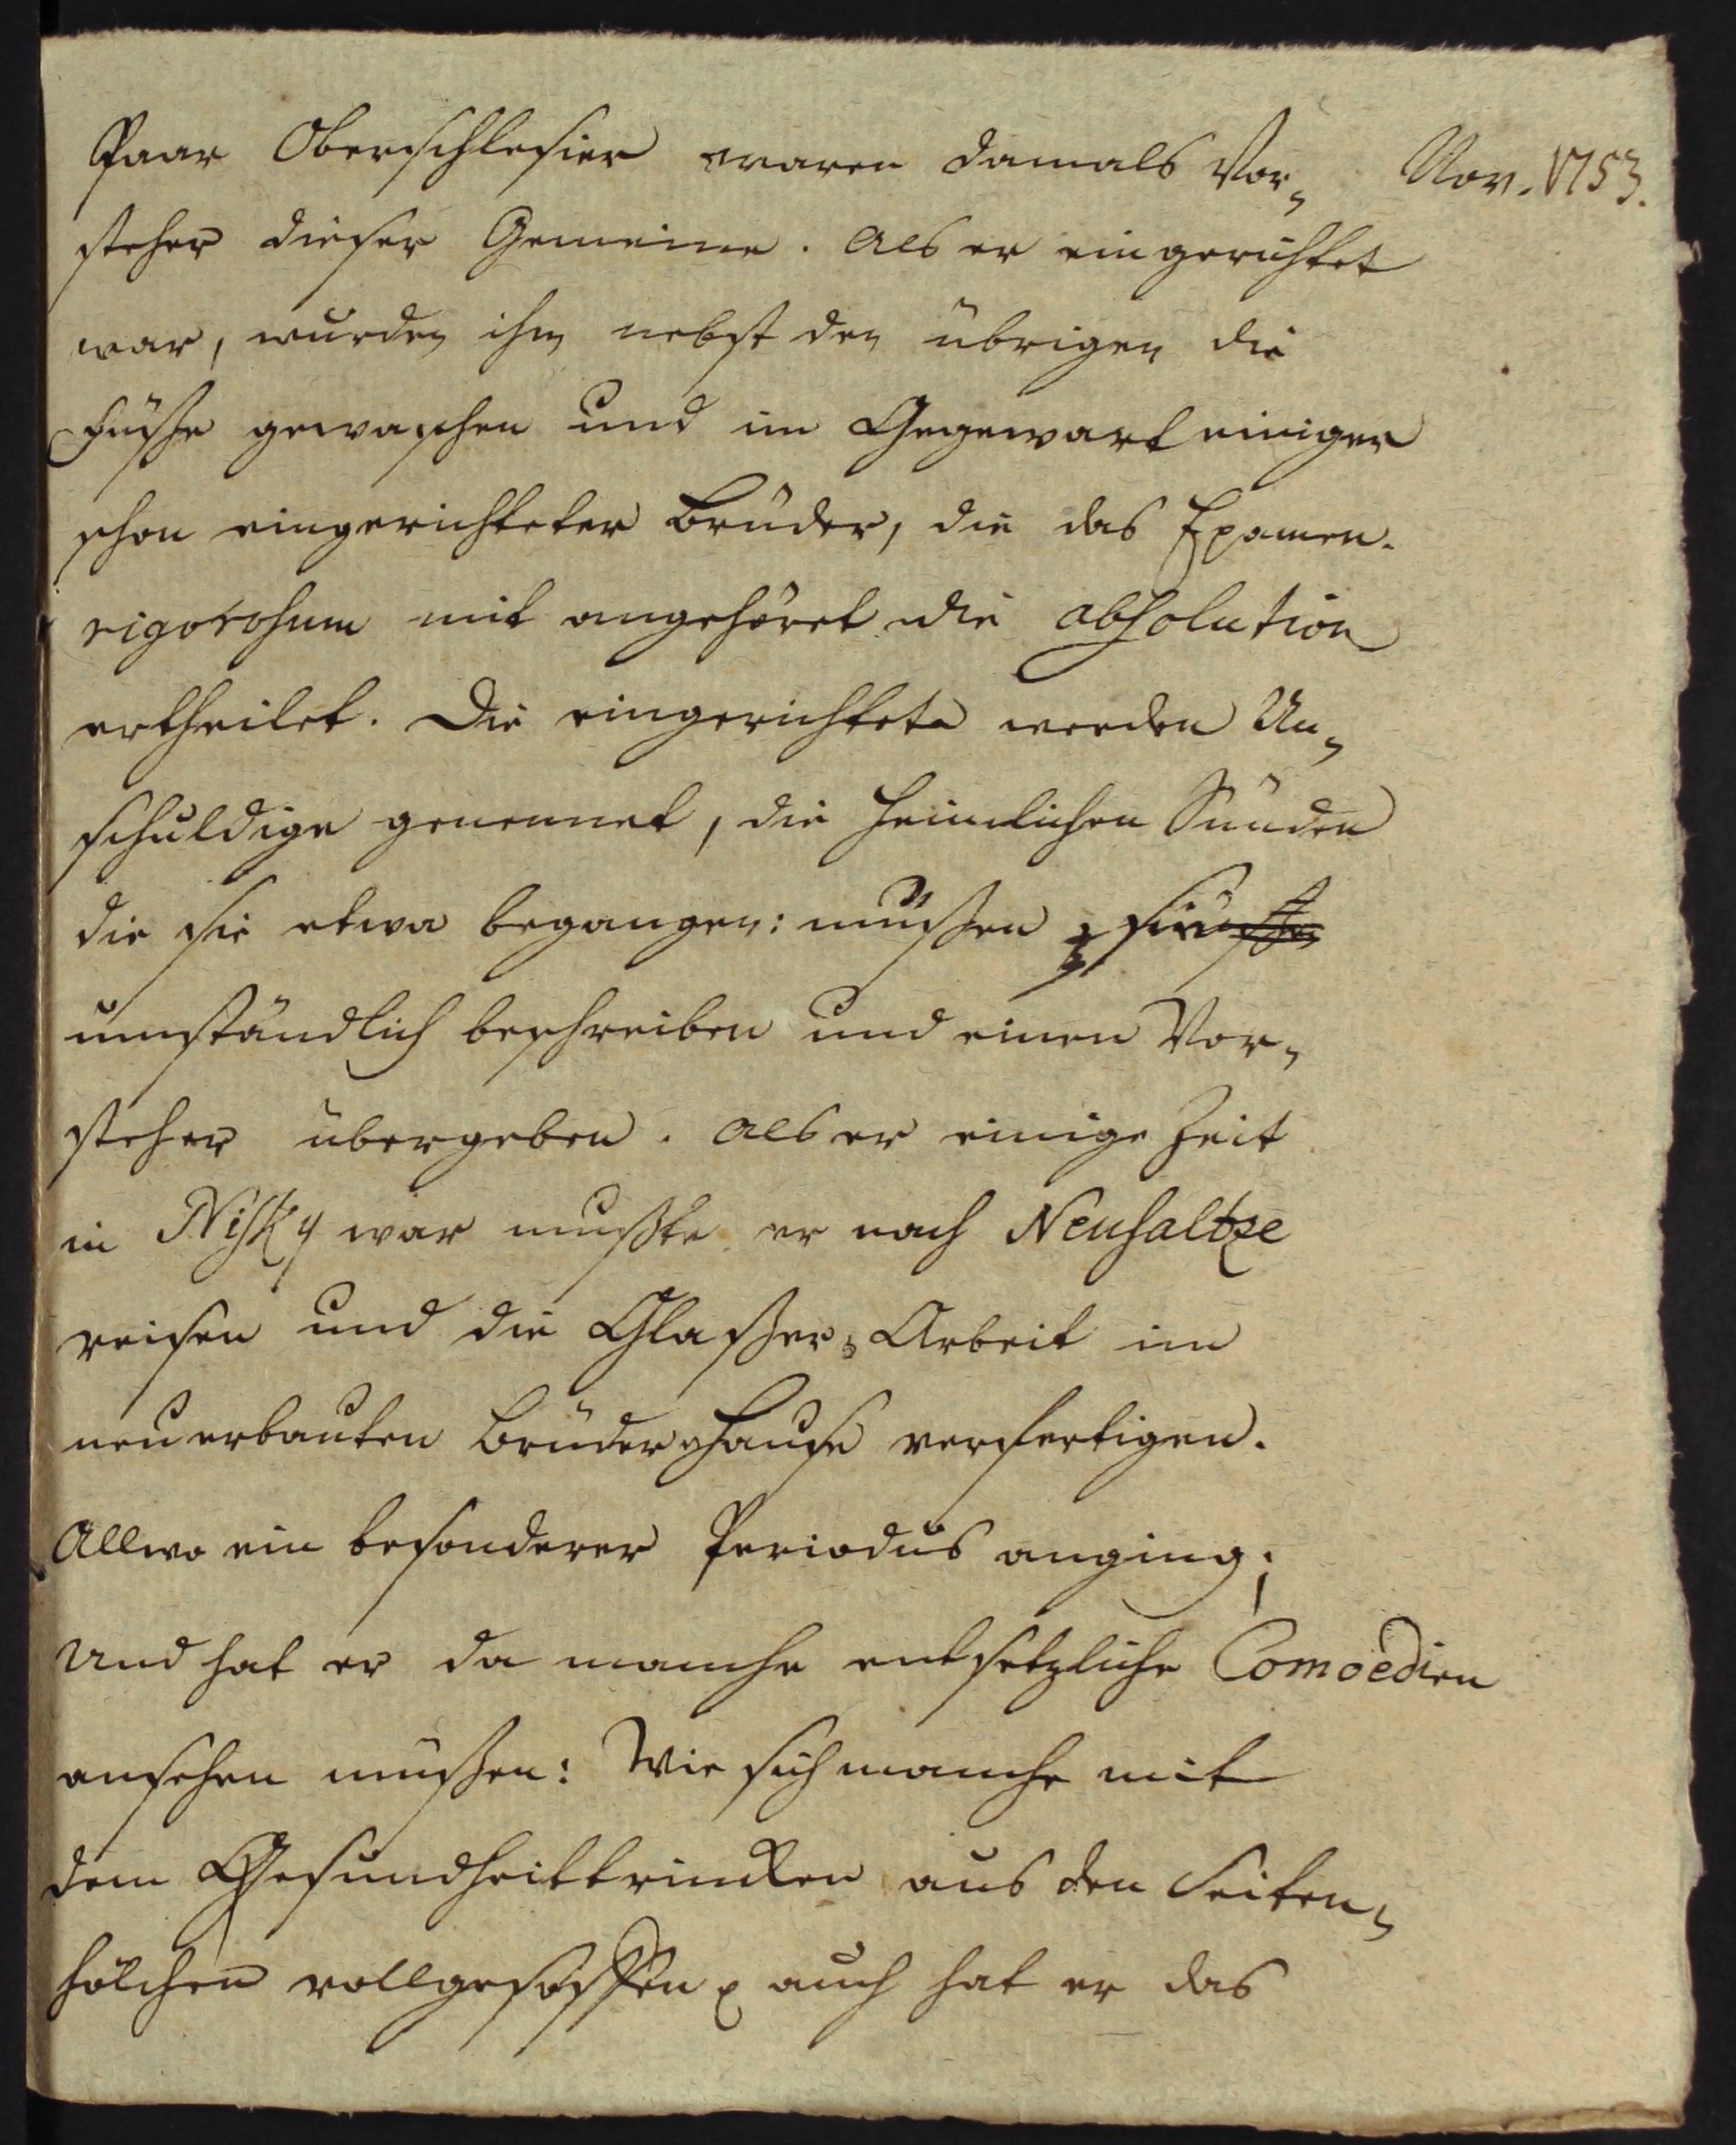 Paar Oberschlesier waren damals Vor- Nov. 1753.
steher dieser Gemeine. Als er eingerichtet
war, wurden ihm nebst den übrigen die
Füsse gewaschen und im Gegewart einiger
schon eingerichteter Brüder, die das Examen
rigorosum mit angehöret die absolution
ertheilet. Die eingerichtete werden Un-
schuldige genennet, die heimlichen Sünden
die sie etwa begangen: müssen sie
umständlich beschreiben und einen Vor-
steher übergeben. Als er einige Zeit
in Nisky war mußte er nach Neusaltze
reisen und die Glaßer-Arbeit im
neuerbauten Brüder-Hause verfertigen.
Allwo ein besonderer Periodus anging;
Und hat er da manche entsetzliche Comoedien
ansehen müßen: Wie sich manche mit
dem Gesundheittrincken aus den Seiten-
hölchen vollgesoffen auch hat er das